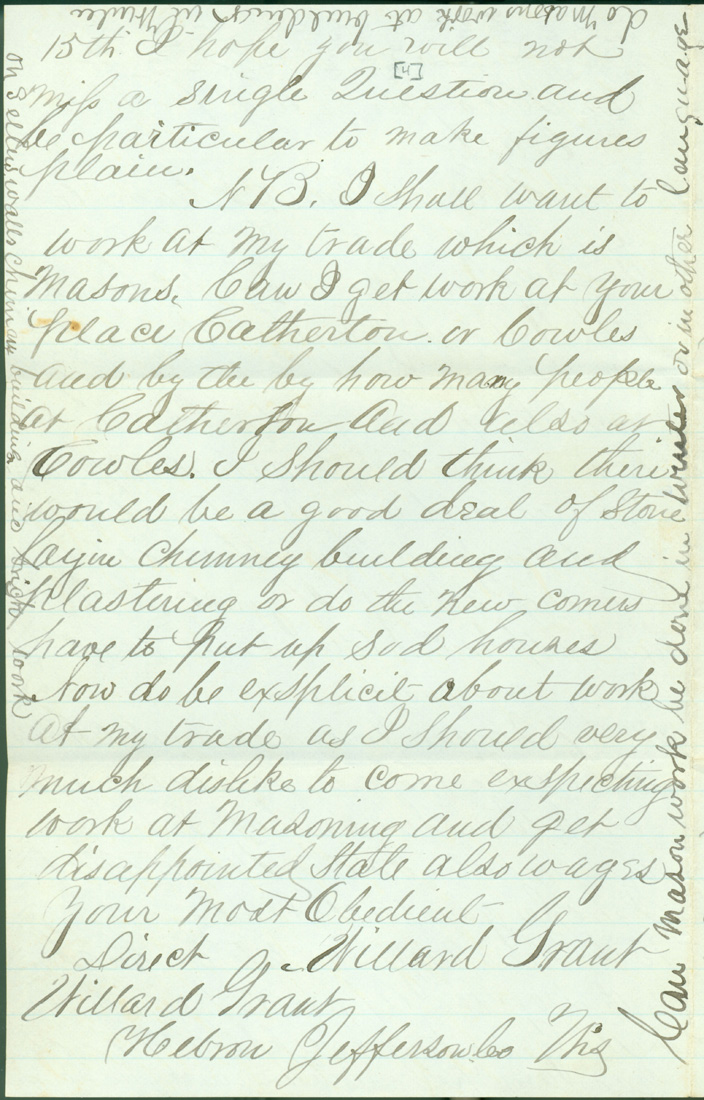 15th I hope you will not
[4]
miss a single Question and
be particular to make figures
plain.
N B. I Shall want to
work at my trade which is
Masons. Can I get work at your
place Catherton or Cowles
and by the by how many people
at Catherton And also at
Cowles. I Should think there
would be a good deal of Stone
layin Chimney building and
plastering or do the new comers
have to put up Sod houses
Now do be exsplicit about work
at my trade as I Should very
much dislike to come exspecting
work at Masoning and get
disappointed State also wages
Your Most Obedient
Direct Willard Grant
Willard Grant
Hebron Jefferson Co Wis
Can Mason work be done in winter or in other language
do Masons work at buildings in Winter
on Sellers walls Chimny building and brick work